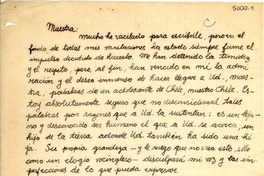 5000-1
Maestra:
mucho he vacilado para escribirle, pero en el
fondo de todas mis vacilaciones ha estado siempre firme el
impulso decidido de hacerlo. Me han detenido la timidez
y el respeto, pero, al fin, han vencido en mí la admi-
ración y el deseo inmenso de hacer llegar a Ud., Maes-
tra, palabras de un adolescente de Chile, nuestro Chile. Es-
toy absolutamente seguro que no desconocerá tales
palabras por razones que a Ud. la sustentan: es un leja-
no y desconocido ser humano el que a Ud. se acerca, son
hijo de la tierra adonde Ud. también ha sido una hi-
ja. Su propia grandeza - y le ruego que no vea esto
sólo un elogio - disculpará mi voz y las im-
perfecciones de lo que pueda expresar.